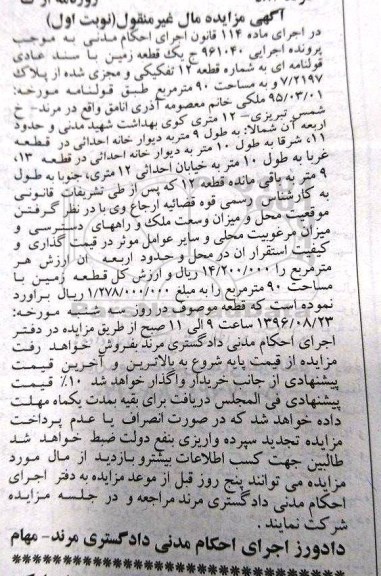 آگهی مزایده مال غیرمنقول(نوبت اول)
در اجرای ماده ۱۱۴ قانون اجرای احکام مدنی به موجب
پرونده اجرایی ۹۶۱۰۴۰ ج یک قطعه زمین با سند عادی
قولنامه ای به شماره قطعه ۱۲ تفکیکی و مجزی شده از پلاک
۷/۲۱۹۷ و به مساحت ۹۰ مترمربع طبق قولنامه مورخه:
۹۵/۰۳/۰۱ ملکی خانم معصومه آذری اناققق واقع در مرند- خ
شمس تبریزی- ۱۲ متری کوی بهداشت شهید مدنی و حدود
اربعه آن شمالا: به طول ۹ متر به دیوار خانه احداثی در قطعه
۱۱، شرقا به طول ۱۰ متر به دیوار خانه احداثی در قطعه ۱۳،
غربا به طول ۱۰ متر به خیابان احداثی ۱۲ متری، جنوبا به طول
۹ متر به باقی مانده قطعه ۱۲ که پس از طی تشریفات قانونی
به کارشناس رسمی قوه قضائیه ارجاع وی با در نظر گرفتن
موقعیت محل و میزان وسعت ملک و راههای دسترسی و
میزان مرغوبیت محلی و سایر عوامل موثر در قیمت گذاری و
کیفیت استقرار ان در محل و حدود اربعه ان ارزش هر
مترمربع را ۱۴/۲۰۰/۰۰۰ ریال و ارزش کل قطعه زمین با
مساحت ۹۰ مترمربع را به مبلغ ۱/۲۷۸/۰۰۰/۰۰۰ ریال براورد
نموده است که قطعه موصوف در روز سه شنبه مورخه:
۱۳۹۶/۰۸/۲۳ ساعت ۹ الی ۱۱ صبح از طریق مزایده در دفتر
اجرای احکام مدنی دادگستری مرند بفروش خواهد رفت
مزایده از قیمت پایه شروع به بالاترین و آخرین قیمت
پیشنهادی از جانب خریدار واگذار خواهد شد ۱۰٪ قیمت
پیشنهادی فی المجلس دریافت برای بقیه بمدت یکماه مهلت
داده خواهد شد که در صورت انصراف یا عدم پرداخت
مزایده تجدید سپرده واریزی بنفع دولت ضبط خواهد شد
طالبین جهت کسب اطلاعات بیشترو بازدید از مال مورد
مزایده می توانند پنج روز قبل از موعد مزایده به دفتر اجرای
احکام مدنی دادگستری مرند مراجعه و در جلسه مزایده
شرکت نمایند .
دادورز اجرای احکام مدنی دادگستری مرند- مهام